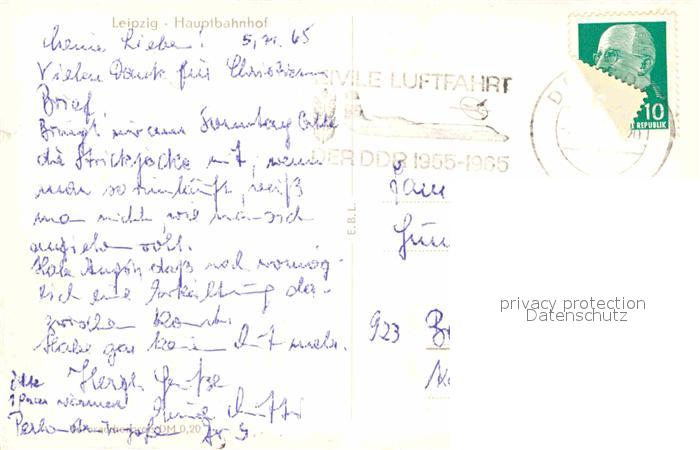 Leipzig - Hauptbahnhof
Meine Lieben! 5. 65
Vielen Dank für Christians
Brief
Bringt mir am Sonntag bitte
die Strickjacke mit, wenn
man so rumläuft, weiß
man nicht, wie man sich
anziehen soll.
Habe Angst, daß noch womög-
lich eine Erkältung da-
zwischen kommt.
Habe gar kein mehr.
Herzl. Grüße
bitte
1 Paar
DM 0,20
E.B.L.
ZIVILE LUFTFAHRT
DER DDR 1955-1965
10
REPUBLIK
Fam
923
privacy protection
Datenschutz